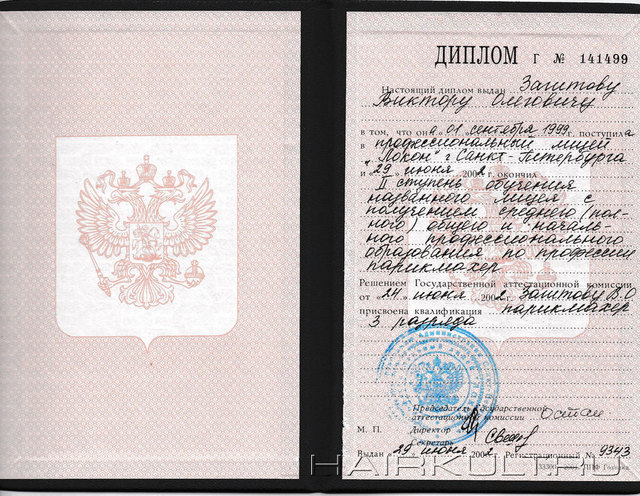 ДИПЛОМ Г № 141499
Настоящий диплом выдан Загитову
Виктору Олеговичу
в том, что он „ 01 „ сентября 1999 г. поступил
в профессиональный лицей
"Локон" г. Санкт-Петербурга
и „ 29 „ июня 2002 г. окончил
II ступень обучения
названного лицея с
получением среднего (пол-
ного) общего и началь-
ного профессионального
образования по профессии
парикмахер
Решением Государственной аттестационной комиссии
от „ 24 „ июня 2002 г. Загитову В.О.
присвоена квалификация парикмахер
3 разряда
Председатель Государственной
аттестационной комиссии
М. П. Директор
Секретарь
Выдан „ 29 „ июня 2002 г. Регистрационный № 9343
HAIRKULT.RU